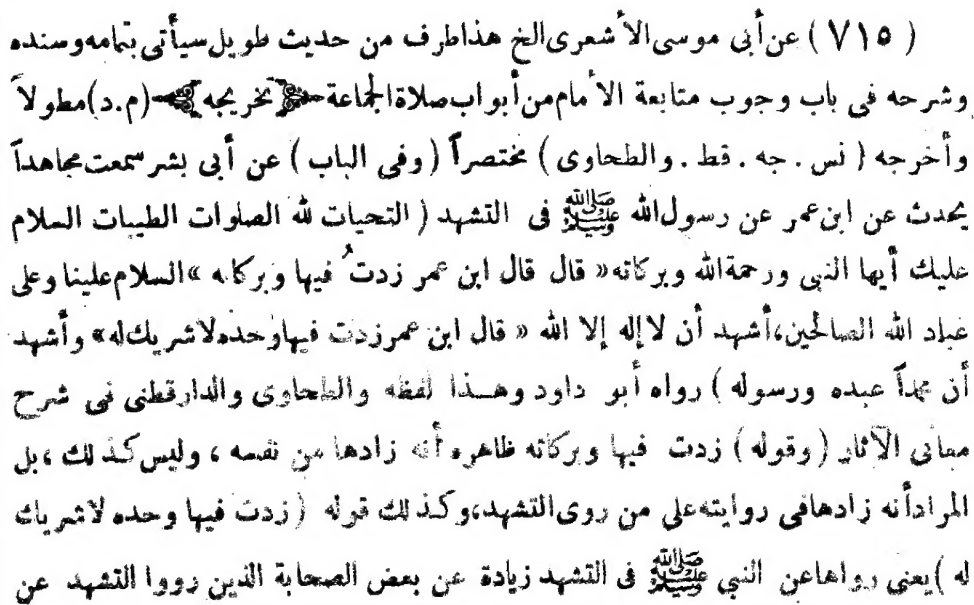 ( ٧١٥ ) عن أبى موسى الأشعرى الخ هذا طرف من حديث طويل سيأتى بتمامه وسنده
وشرحه فى باب وجوب متابعة الأمام من أبواب صلاة الجماعة ﴿تخريجه﴾ (م. د) مطولاً
وأخرجه ( نس . جه . قط . والطحاوى ) مختصراً ( وفى الباب ) عن أبى بشر سمعت مجاهداً
يحدث عن ابن عمر عن رسول الله ﷺ فى التشهد ( التحيات لله الصلوات الطيبات السلام
عليك أيها النبى ورحمة الله وبركاته « قال قال ابن عمر زدتُ فيها وبركاته » السلام علينا وعلى
عباد الله الصالحين، أشهد أن لا إله إلا الله « قال ابن عمر زدت فيها وحده لا شريك له » وأشهد
أن محمداً عبده ورسوله ) رواه أبو داود وهــذا لفظه والطحاوى والدارقطنى فى شرح
معانى الآثار ( وقوله ) زدت فيها وبركاته ظاهره أنه زادها من نفسه ، وليس كذلك ، بل
المراد أنه زادها فى روايته على من روى التشهد، وكذلك قوله ( زدت فيها وحده لا شريك
له ) يعنى رواها عن النبي ﷺ فى التشهد زيادة عن بعض الصحابة الذين رووا التشهد عن